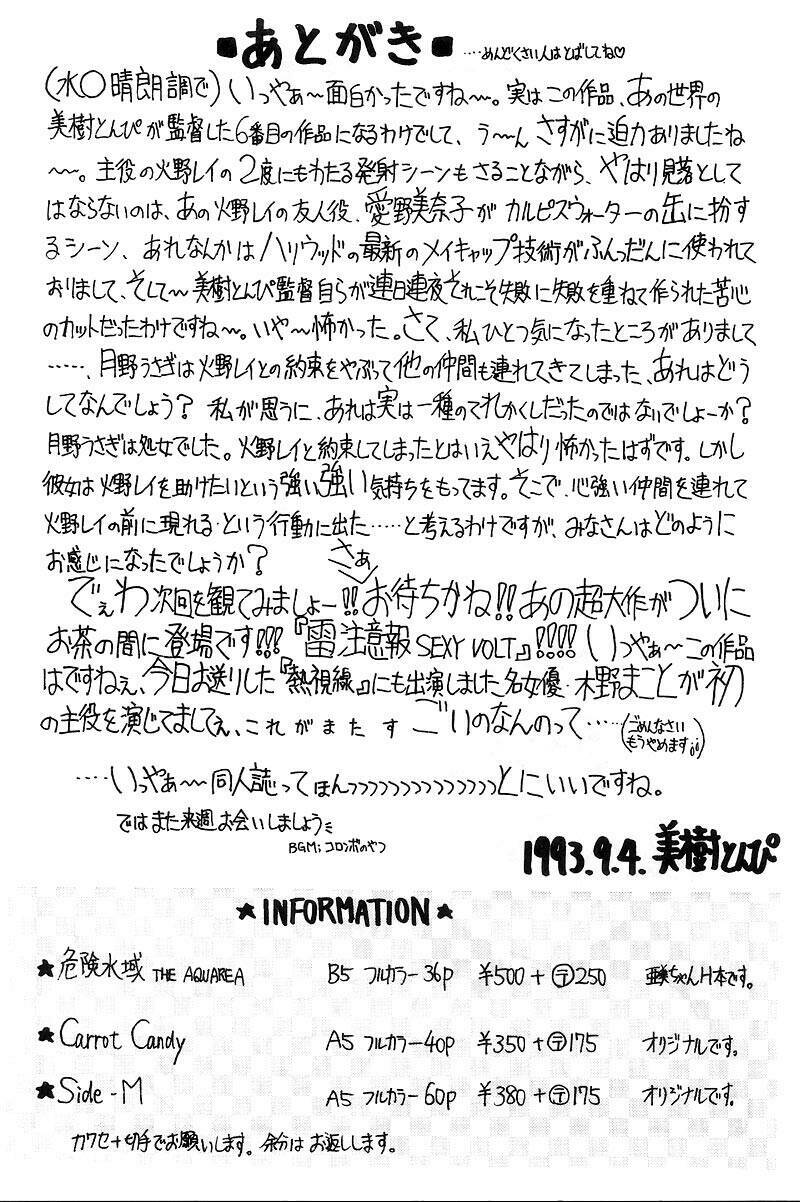 ■あとがき■ ‥‥めんどくさい人はとばしてね♡
(水○晴朗調で)いっやぁ〜面白かったですね〜。実はこの作品、あの世界の
美樹とんぴが監督した6番目の作品になるわけでして、う〜ん さすがに迫力ありましたね
〜〜。主役の火野レイの2度にもわたる発射シーンもさることながら、やはり見落として
はならないのは、あの火野レイの友人役、愛野美奈子がカルピスウォーターの缶に扮す
るシーン、あれなんかはハリウッドの最新のメイキャップ技術がふんだんに使われて
おりまして、そして〜美樹とんぴ監督自らが連日連夜それこそ失敗に失敗を重ねて作られた苦心
のカットだったわけですね〜。いや〜怖かった。さて、私ひとつ気になったところがありまして
‥‥‥、月野うさぎは火野レイとの約束をやぶって他の仲間も連れてきてしまった、あれはどう
してなんでしょう? 私が思うに、あれは実は一種のてれかくしだったのではないでしょーか?
月野うさぎは処女でした。火野レイと約束してしまったとはいえやはり怖かったはずです。しかし
彼女は火野レイを助けたいという強い強い気持ちをもってます。そこで、心強い仲間を連れて
火野レイの前に現れる・という行動に出た‥‥‥と考えるわけですが、みなさんはどのように
お感じになったでしょうか?
さぁ
でぇわ次回を観てみましょー!!お待ちかね!!あの超大作がついに
お茶の間に登場です!!!『雷注意報 SEXY VOLT』!!!!いっやぁ〜この作品
はですねぇ、今日お送りした『熱視線』にも出演しました名女優・木野まことが初
の主役を演じてましてぇ、これがまたすごいのなんのって‥‥‥(ごめんなさいもうやめます;;)
‥‥いっやぁ〜〜同人誌ってほんっっっっっっっっっっっっっっっとにいいですね。
ではまた来週お会いしましょう
BGM;コロンボのやつ
1993.9.4. 美樹とんぴ
★INFORMATION★
★危険水域 THE AQUAREA B5 フルカラー36p ¥500+〒250 亜美ちゃんH本です。
★Carrot Candy A5 フルカラー40p ¥350+〒175 オリジナルです。
★Side-M A5 フルカラー60p ¥380+〒175 オリジナルです。
カワセ+切手でお願いします。余分はお返しします。